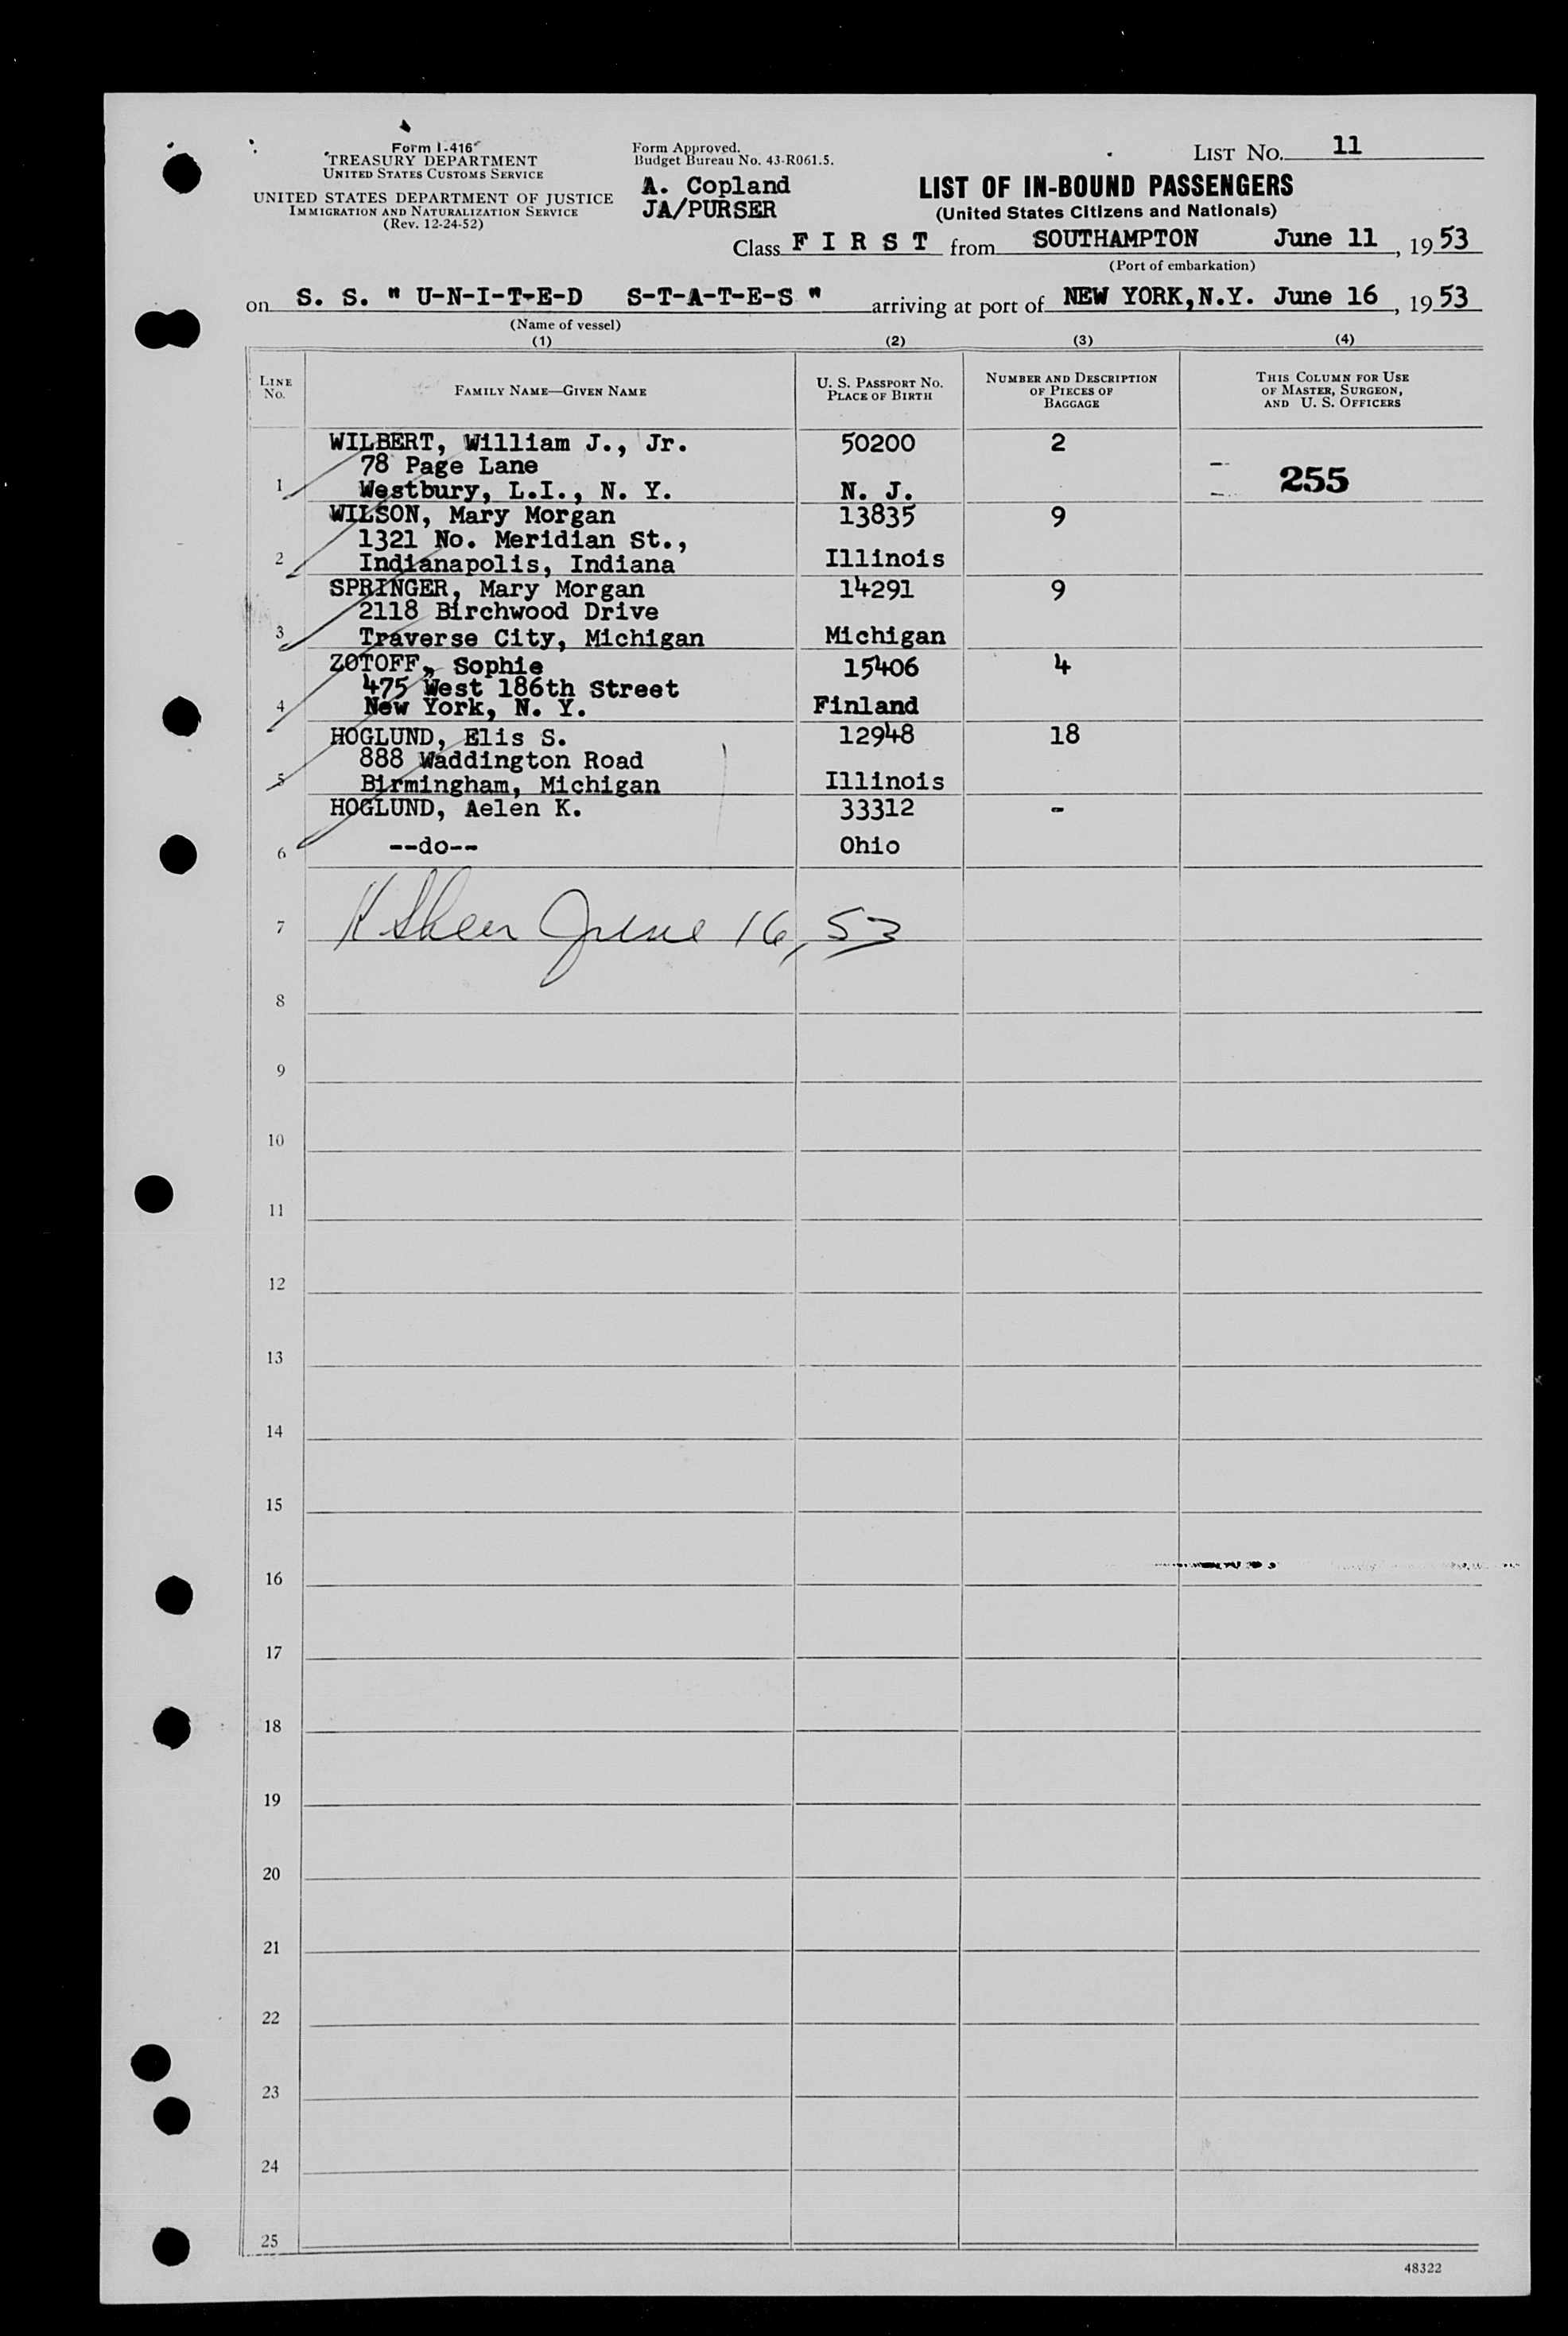 Form I-416
TREASURY DEPARTMENT
UNITED STATES CUSTOMS SERVICE
UNITED STATES DEPARTMENT OF JUSTICE
IMMIGRATION AND NATURALIZATION SERVICE
(Rev. 12-24-52)
Form Approved.
Budget Bureau No. 43-R061.5.
A. Copland
JA/PURSER
LIST No. 11
LIST OF IN-BOUND PASSENGERS
(United States Citizens and Nationals)
Class F I R S T from SOUTHAMPTON June 11, 1953
(Port of embarkation)
on S. S. " U-N-I-T-E-D S-T-A-T-E-S " arriving at port of NEW YORK,N.Y. June 16, 1953
(Name of vessel)
(1) (2) (3) (4)
LINE No. FAMILY NAME—GIVEN NAME U. S. PASSPORT No. PLACE OF BIRTH NUMBER AND DESCRIPTION OF PIECES OF BAGGAGE THIS COLUMN FOR USE OF MASTER, SURGEON, AND U. S. OFFICERS
WILBERT, William J., Jr. 50200 2
78 Page Lane 255
1 Westbury, L.I., N. Y. N. J.
WILSON, Mary Morgan 13835 9
1321 No. Meridian St.,
2 Indianapolis, Indiana Illinois
SPRINGER, Mary Morgan 14291 9
2118 Birchwood Drive
3 Traverse City, Michigan Michigan
ZOTOFF, Sophie 15406 4
475 West 186th Street
4 New York, N. Y. Finland
HOGLUND, Elis S. 12948 18
888 Waddington Road
5 Birmingham, Michigan Illinois
HOGLUND, Aelen K. 33312 -
6 --do-- Ohio
7 June 16, 53
8
9
10
11
12
13
14
15
16
17
18
19
20
21
22
23
24
25
48322